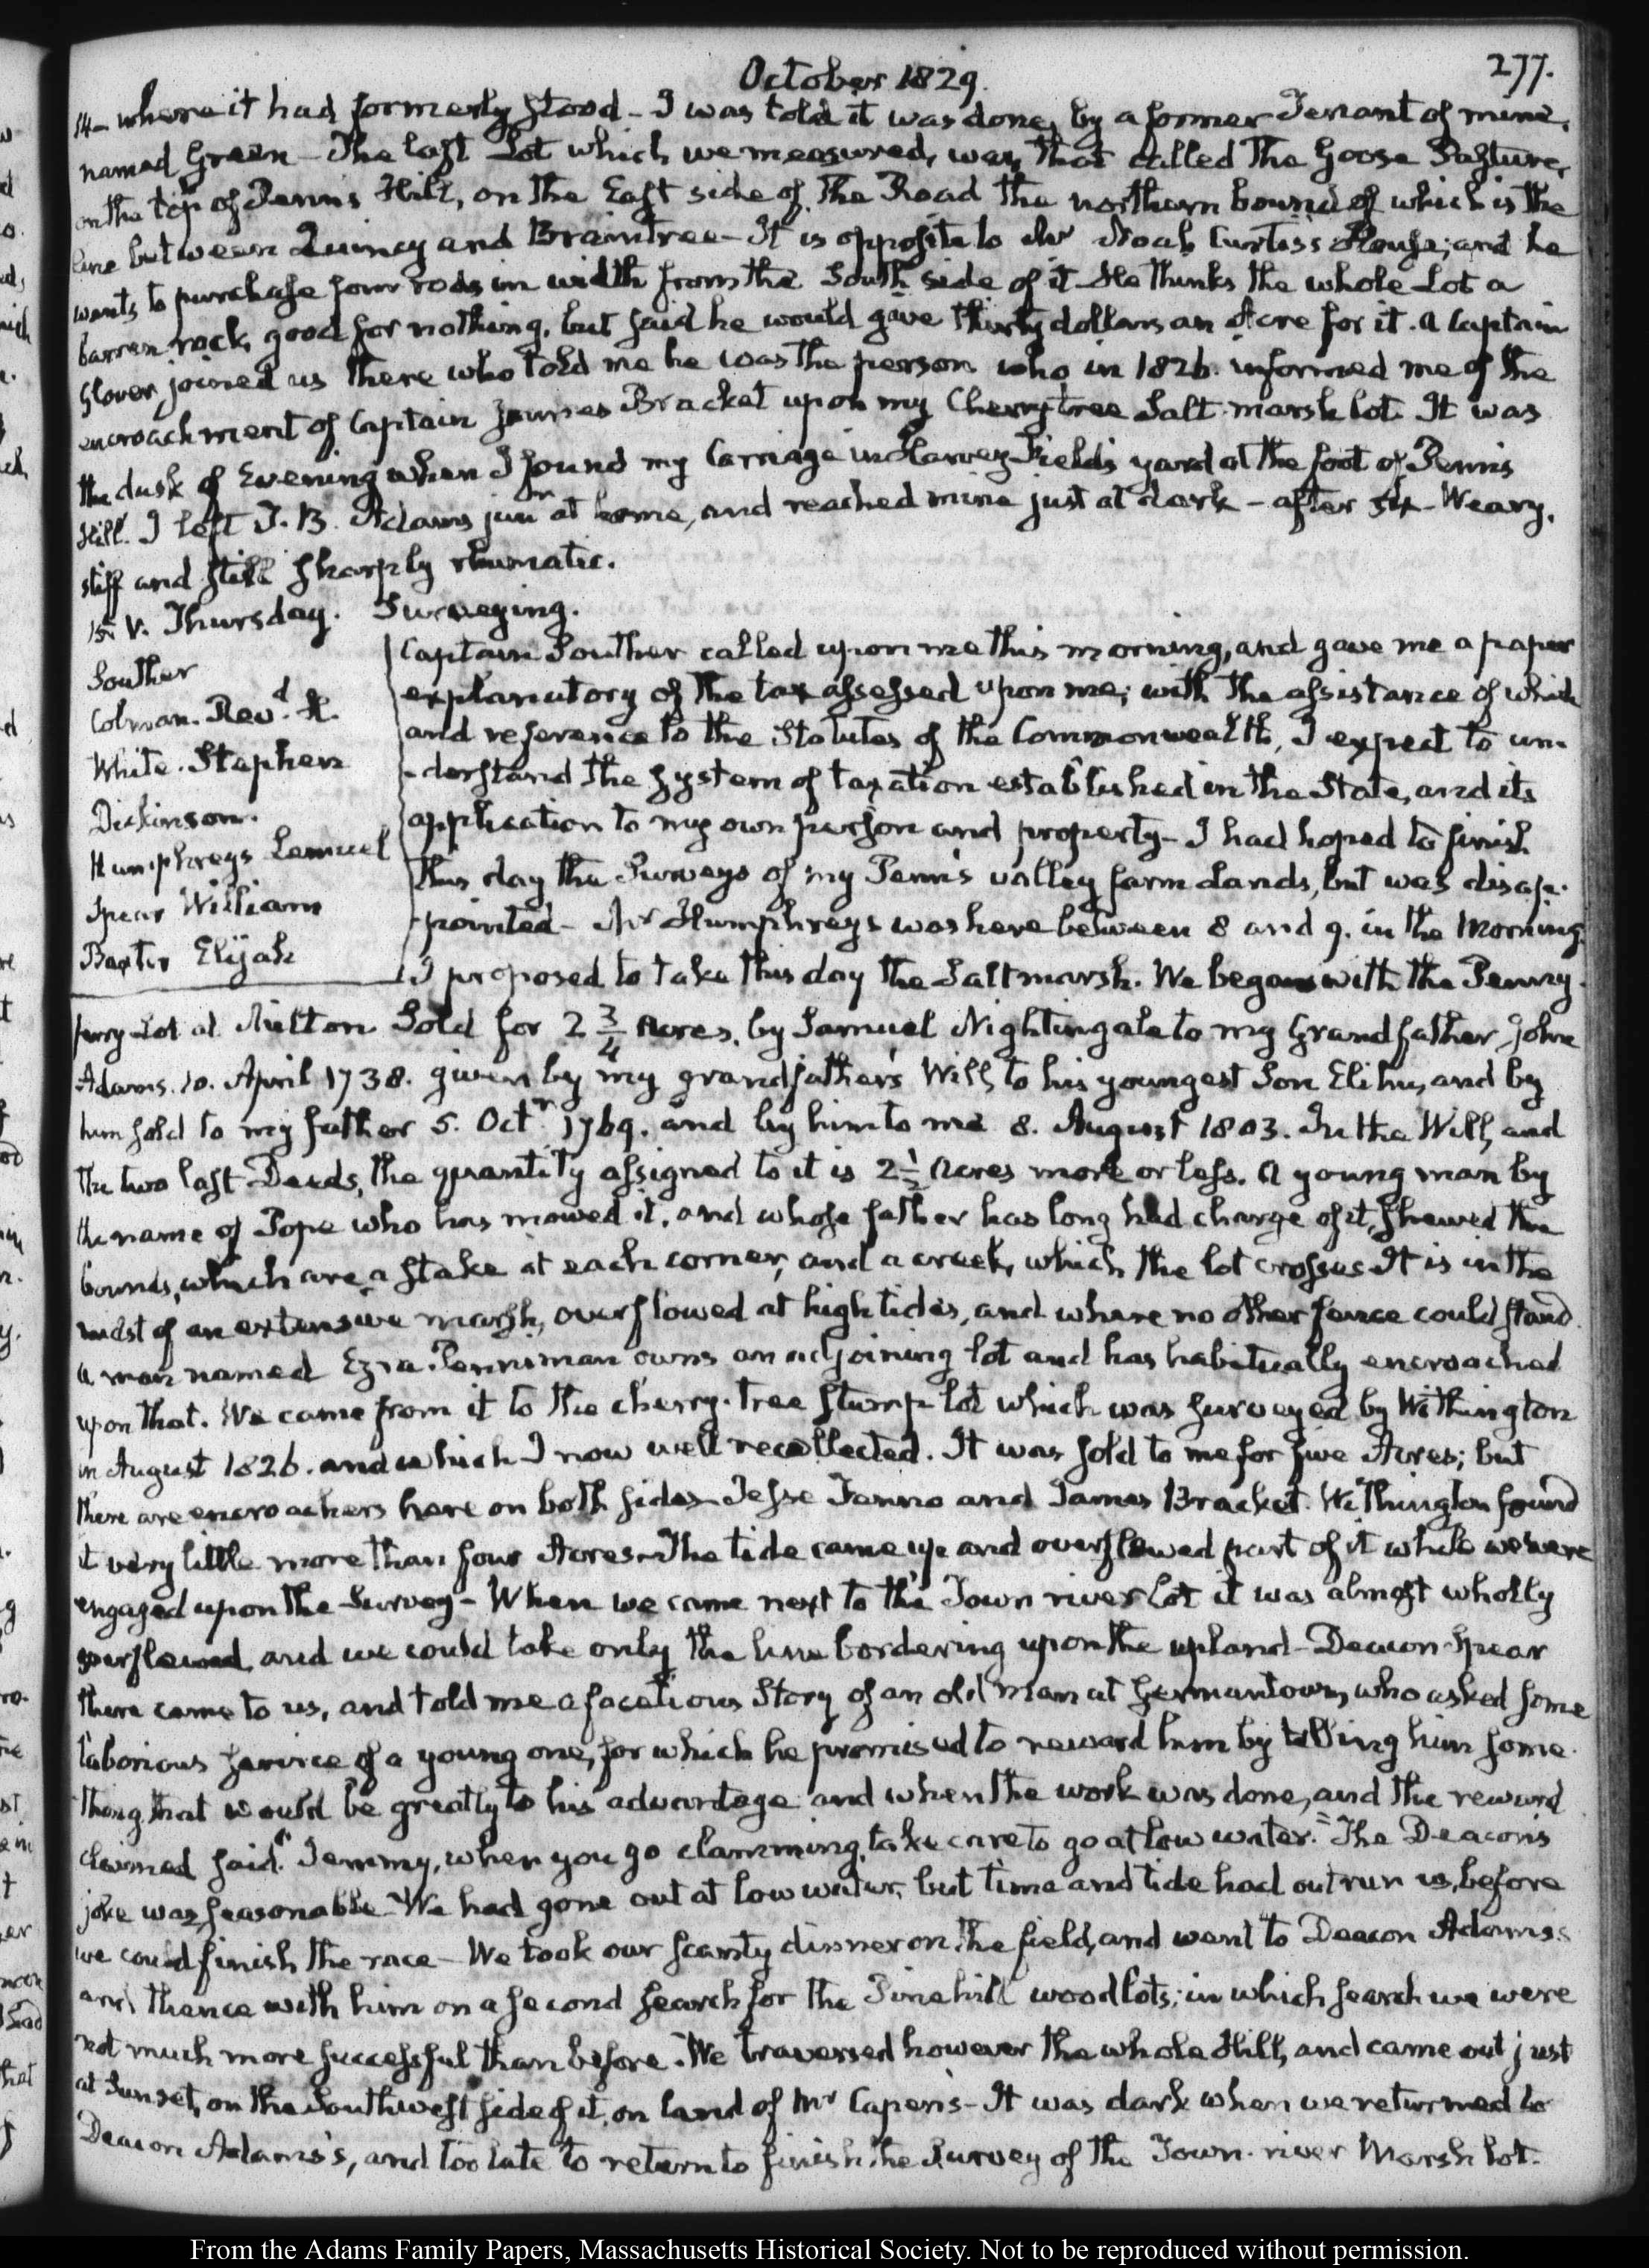 October 1829.
277.
14- where it had formerly stood - I was told it was done, by a former Tenant of mine,
named Green - The last Lot which we measured, was, that called The Goose Pasture,
on the top of Penn's Hill, on the East side of the Road the northern bound of which is the
line between Quincy and Braintree - It is opposite to Mr Noah Curtis's House; and he
wants to purchase four rods in width from the South side of it - He thinks the whole Lot a
barren rock, good for nothing, but said he would give thirty dollars an Acre for it. A Captain
Glover, joined us there who told me he was the person who in 1826. informed me of the
encroachment of Captain James Bracket upon my Cherry tree Salt marsh lot. It was
the dusk of Evening when I found my Carriage in Harvey Field's yard at the foot of Penn's
Hill. I left T. B. Adams junr at home, and reached mine just at dark - after 5¼ - Weary,
stiff and still sharply rheumatic.
15. V. Thursday. Surveying.
Souther
Colman. Revd. H.
White. Stephen
Dickinson.
Humphreys Lemuel
Spear William
Baxter Elijah
Captain Souther called upon me this morning, and gave me a paper
explanatory of the tax assessed upon me; with the assistance of which
and reference to the Statutes of the Commonwealth, I expect to un-
-derstand the system of taxation established in the State, and its
application to my own person and property - I had hoped to finish
this day the Surveys of my Penn's valley farm Lands, but was disap-
-pointed - Mr Humphreys was here between 8 and 9. in the Morning.
I proposed to take this day the Salt marsh. We began with the Penny-
ferry Lot at Milton. Sold for 2 3/4 Acres, by Samuel Nightingale to my Grandfather John
Adams. 10. April 1738. given by my grandfather's Will, to his youngest Son Elihu, and by
him sold to my father 5. Octr 1769. and by him to me 8. August 1803. In the Will, and
the two last Deeds, the quantity assigned to it is 2 1/2 Acres more or less. A young man by
the name of Pope who has mowed it, and whose father has long had charge of it, shewed the
bounds, which are a stake at each corner, and a creek, which the lot crosses. It is in the
midst of an extensive marsh, overflowed at high tides, and where no other fence could stand.
A man named Ezra Penniman owns an adjoining lot and has habitually encroached
upon that. We came from it to the cherry-tree stump lot which was surveyed by Withington
in August 1826. and which I now well recollected. It was sold to me for five Acres; but
there are encroachers here on both sides Jesse Fenno and James Bracket. Withington found
it very little more than four Acres - The tide came up and overflowed part of it while we were
engaged upon the Survey - When we came next to the Town river Lot it was almost wholly
overflowed, and we could take only the line bordering upon the upland - Deacon Spear
there came to us, and told me a facetious Story of an old man at Germantown, who asked some
laborious service of a young one, for which he promised to reward him by telling him some-
thing that would be greatly to his advantage and when the work was done, and the reward
claimed said "Jemmy, when you go clamming, take care to go at low water." The Deacon's
joke was seasonable - We had gone out at low water, but time and tide had outrun us, before
we could finish the race - We took our scanty dinner on the field, and went to Deacon Adams's
and thence with him on a second search for the Pinehill wood lots; in which search we were
not much more successful than before. We traversed however the whole Hill, and came out just
at Sunset, on the Southwest side of it, on land of Mr Capen's - It was dark when we returned to
Deacon Adams's, and too late to return to finish the Survey of the Town-river Marsh lot.
From the Adams Family Papers, Massachusetts Historical Society. Not to be reproduced without permission.